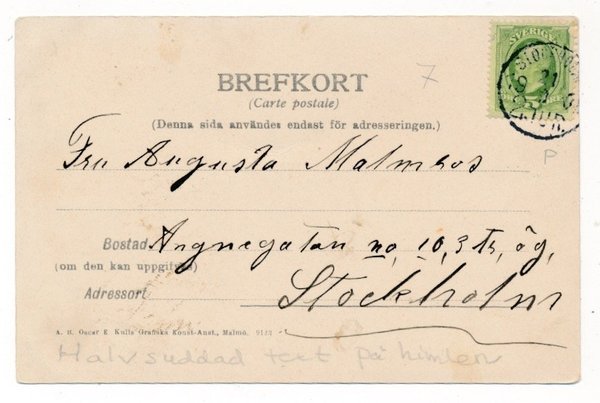 SVERIGE
7
BREFKORT
(Carte postale)
(Denna sida användes endast för adresseringen.)
Fru Augusta Malmros
Bostad Argnegatan no, 10, 3 tr, ög,
(om den kan uppgifvas)
Adressort Stockholm
A. B. Oscar E. Kulls Grafiska Konst-Anst., Malmö.
Halvsuddad text på himlen
P